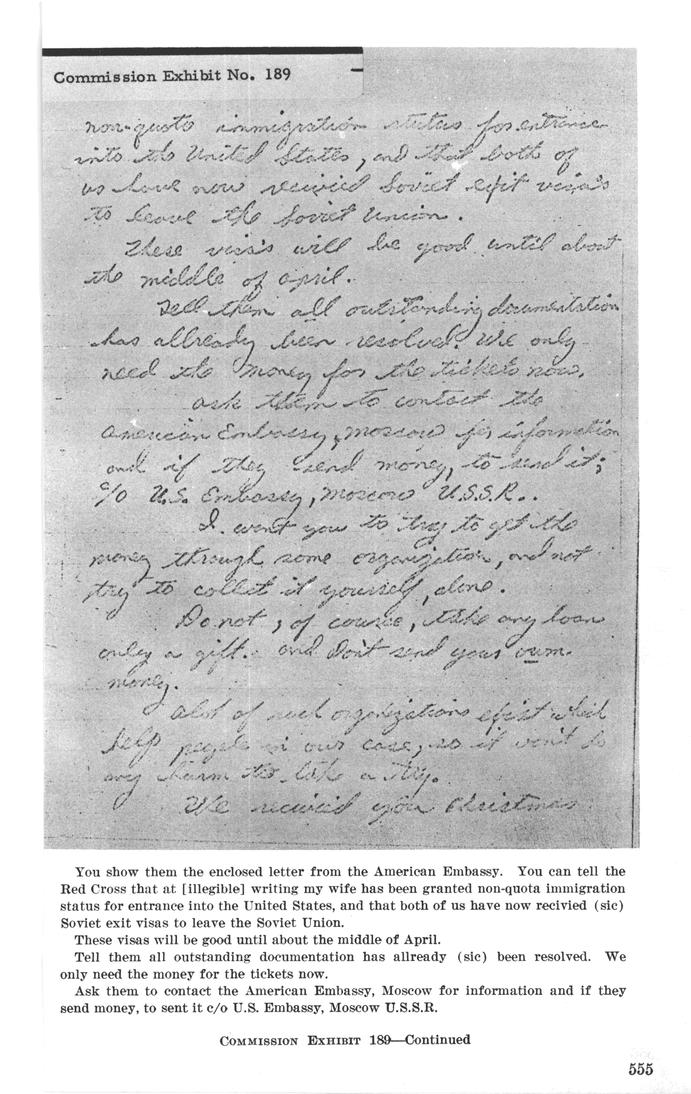 Commission Exhibit No. 189
non-quoto immigration status for entrance
into the United States, and that both of
us have now recivied Soviet exit visa's
to leave the Soviet Union.
These visa's will be good until about
the middle of april.
Tell them all outstanding documentation
has allready been resolved. We only
need the money for the tickets now.
ask them to contact the
American Embassy, Moscow for information
and if they send money, to send it;
c/o U.S. Embassy, Moscow U.S.S.R..
I want you to try to get the
money through some organization, and not
try to collet it yourself, alone.
Do not, of course, take any loan
only a gift. and don't send your own
money.
alot of such organizations exist which
help people in our case, so it won't do
any harm to a try.
We recivied your Christmas
You show them the enclosed letter from the American Embassy. You can tell the
Red Cross that at [illegible] writing my wife has been granted non-quota immigration
status for entrance into the United States, and that both of us have now recivied (sic)
Soviet exit visas to leave the Soviet Union.
These visas will be good until about the middle of April.
Tell them all outstanding documentation has allready (sic) been resolved. We
only need the money for the tickets now.
Ask them to contact the American Embassy, Moscow for information and if they
send money, to sent it c/o U.S. Embassy, Moscow U.S.S.R.
COMMISSION EXHIBIT 189—Continued
555